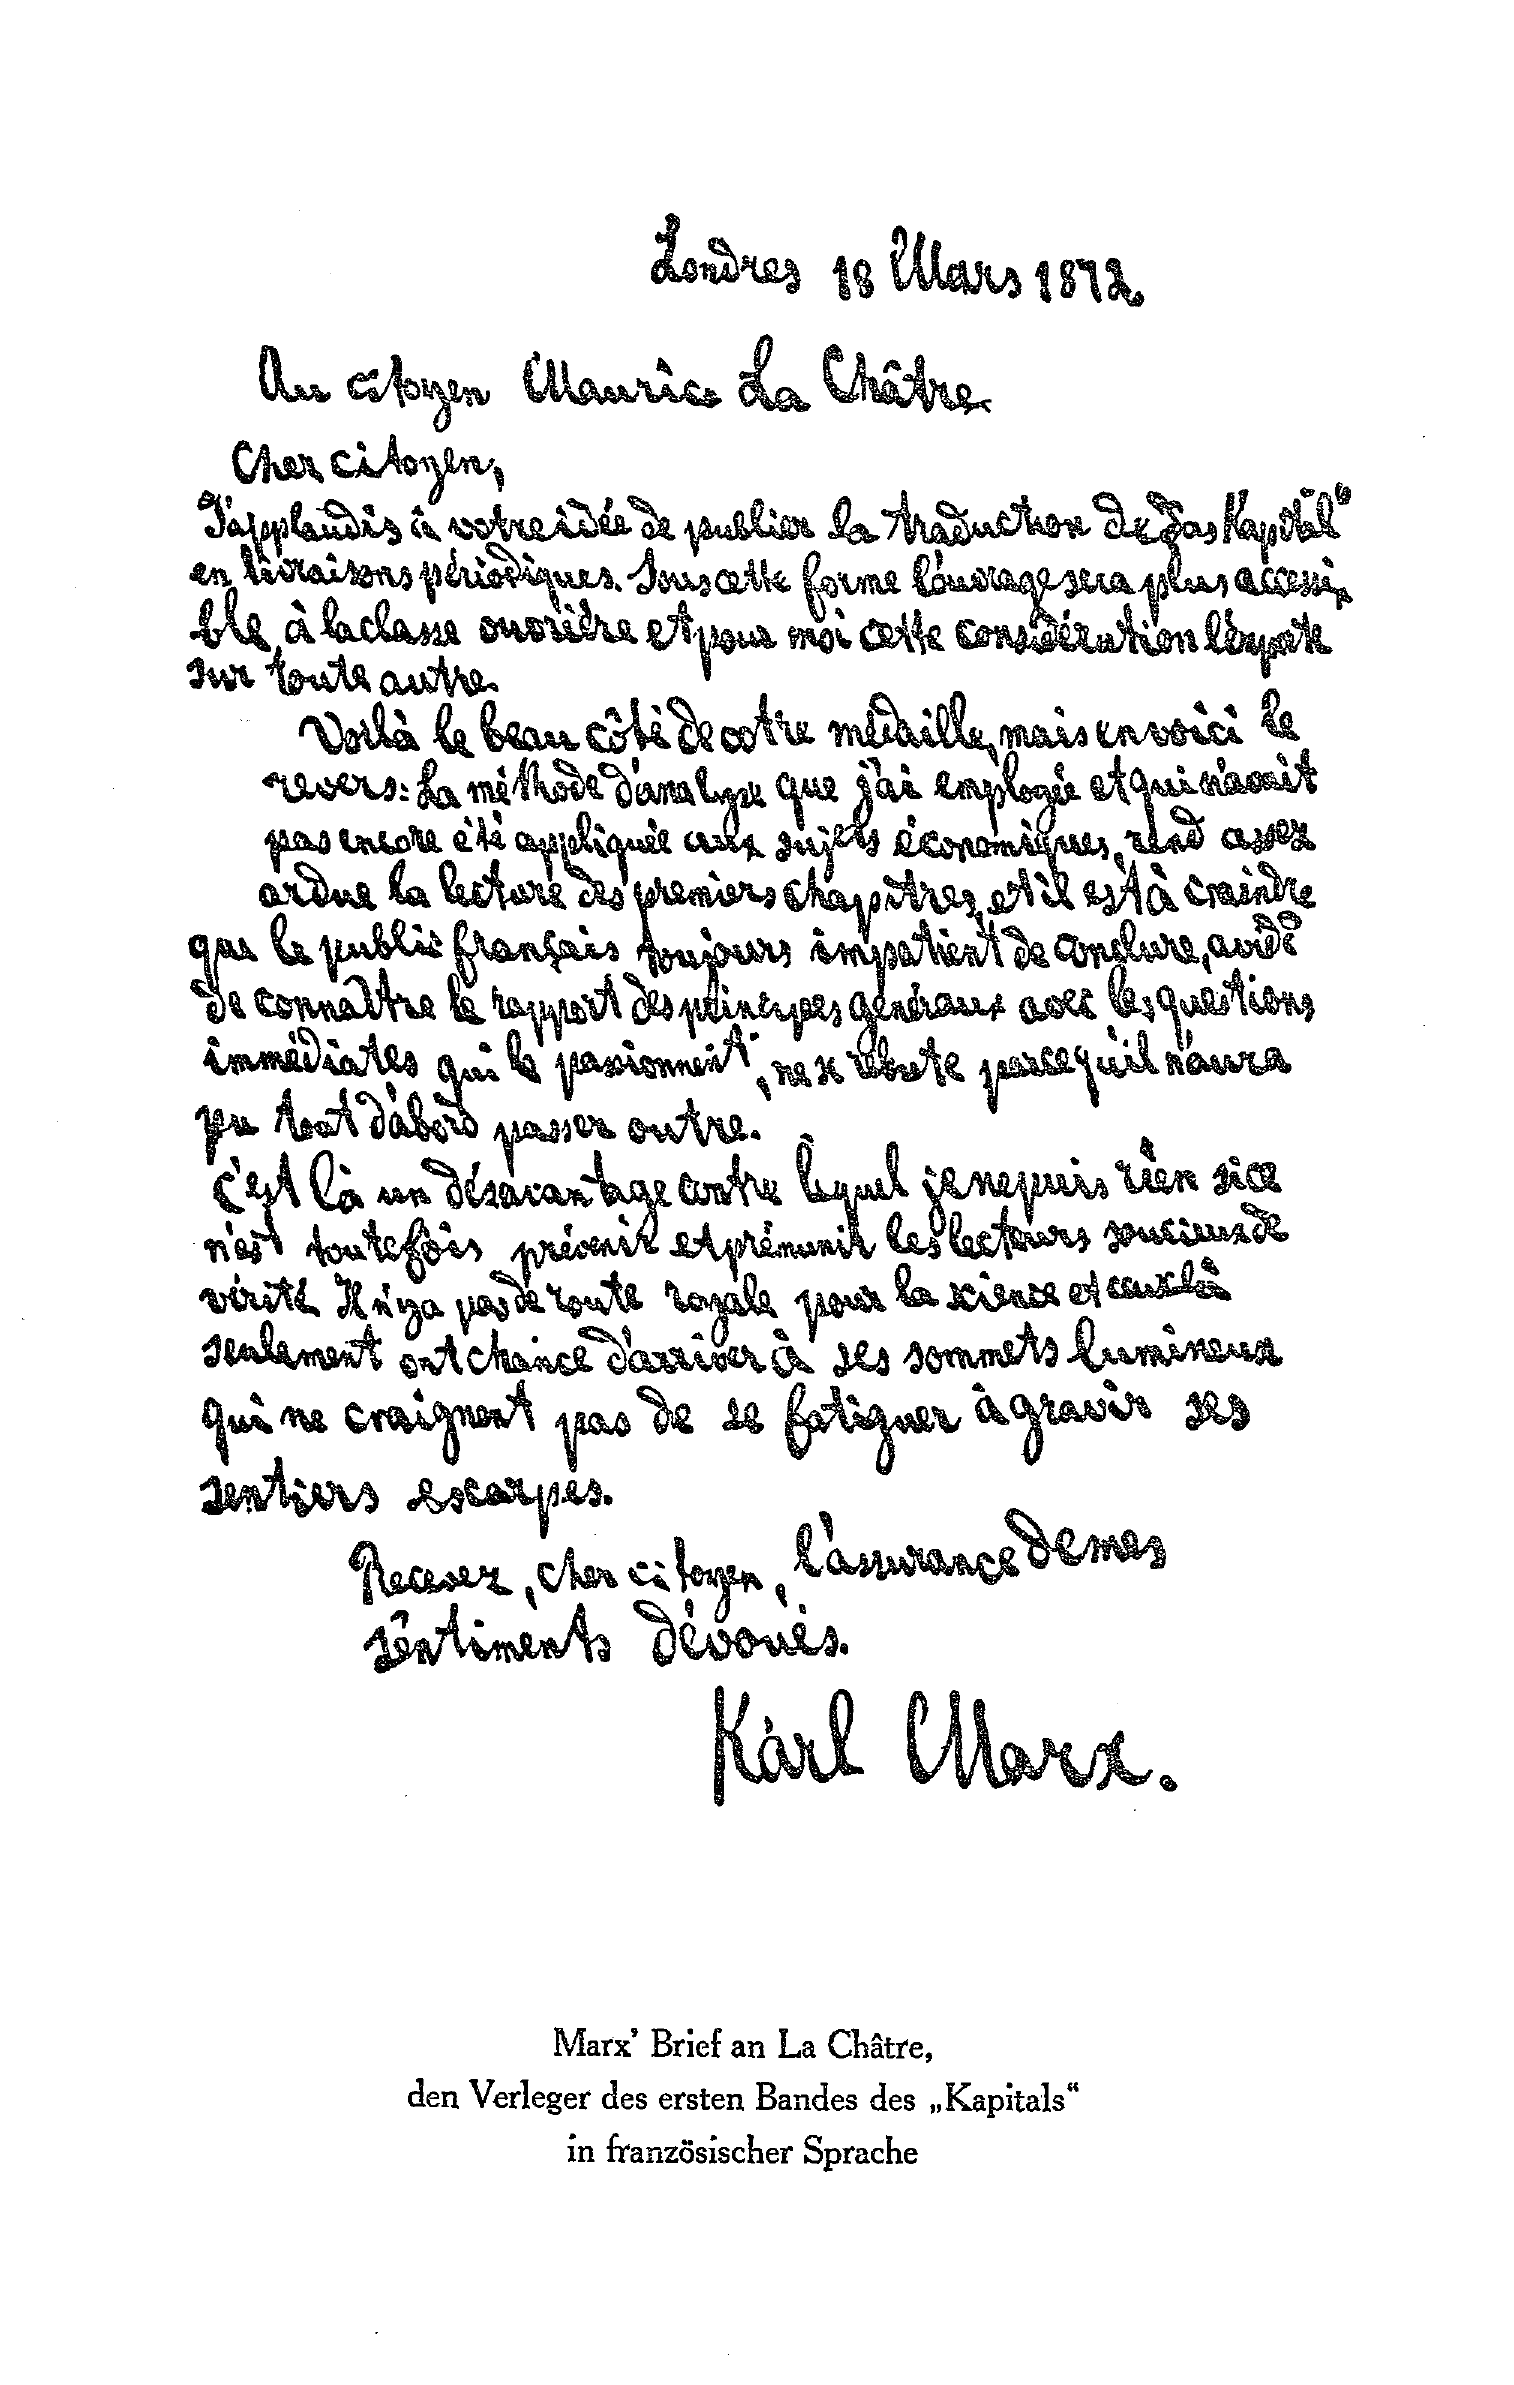 Londres 18 Mars 1872.
Au citoyen Maurice La Châtre.
Cher citoyen,
J'applaudis à votre idée de publier la traduction de „Das Kapital“
en livraisons périodiques. Sous cette forme l'ouvrage sera plus accessi
ble à la classe ouvrière et pour moi cette considération l'emporte
sur toute autre.
Voilà le beau côté de votre médaille, mais en voici le
revers: La méthode d'analyse que j'ai employée et qui n'avait
pas encore été appliquée aux sujets économiques, rend assez
ardue la lecture des premiers chapitres, et il est à craindre
que le public français toujours impatient de conclure, avide
de connaître le rapport des principes généraux avec les questions
immédiates qui le passionnent, ne se rebute parcequ'il n'aura
pu tout d'abord passer outre.
C'est là un désavantage contre lequel je ne puis rien si ce
n'est toutefois prévenir et prémunir les lecteurs soucieux de
vérité. Il n'y a pas de route royale pour la science et ceux-là
seulement ont chance d'arriver à ses sommets lumineux
qui ne craignent pas de se fatiguer à gravir ses
sentiers escarpés.
Recevez, cher citoyen, l'assurance de mes
sentiments dévoués.
Karl Marx.
Marx’ Brief an La Châtre,
den Verleger des ersten Bandes des „Kapitals“
in französischer Sprache